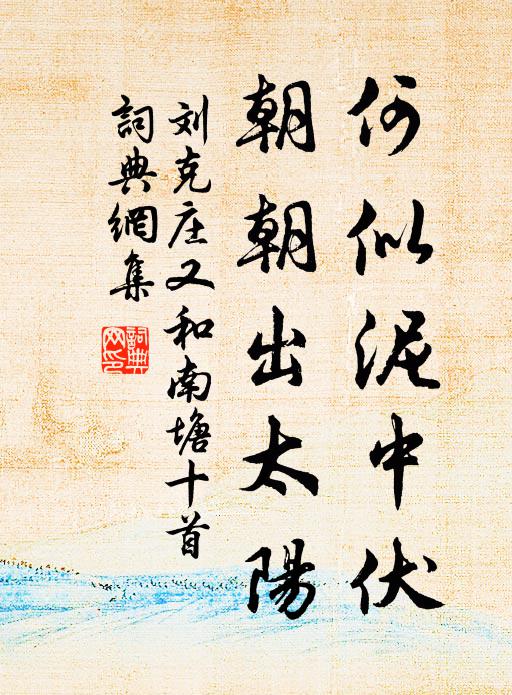 何似泥中伏
朝朝出太陽
刘克庄又和南塘十首
詞典網集
詞典網印